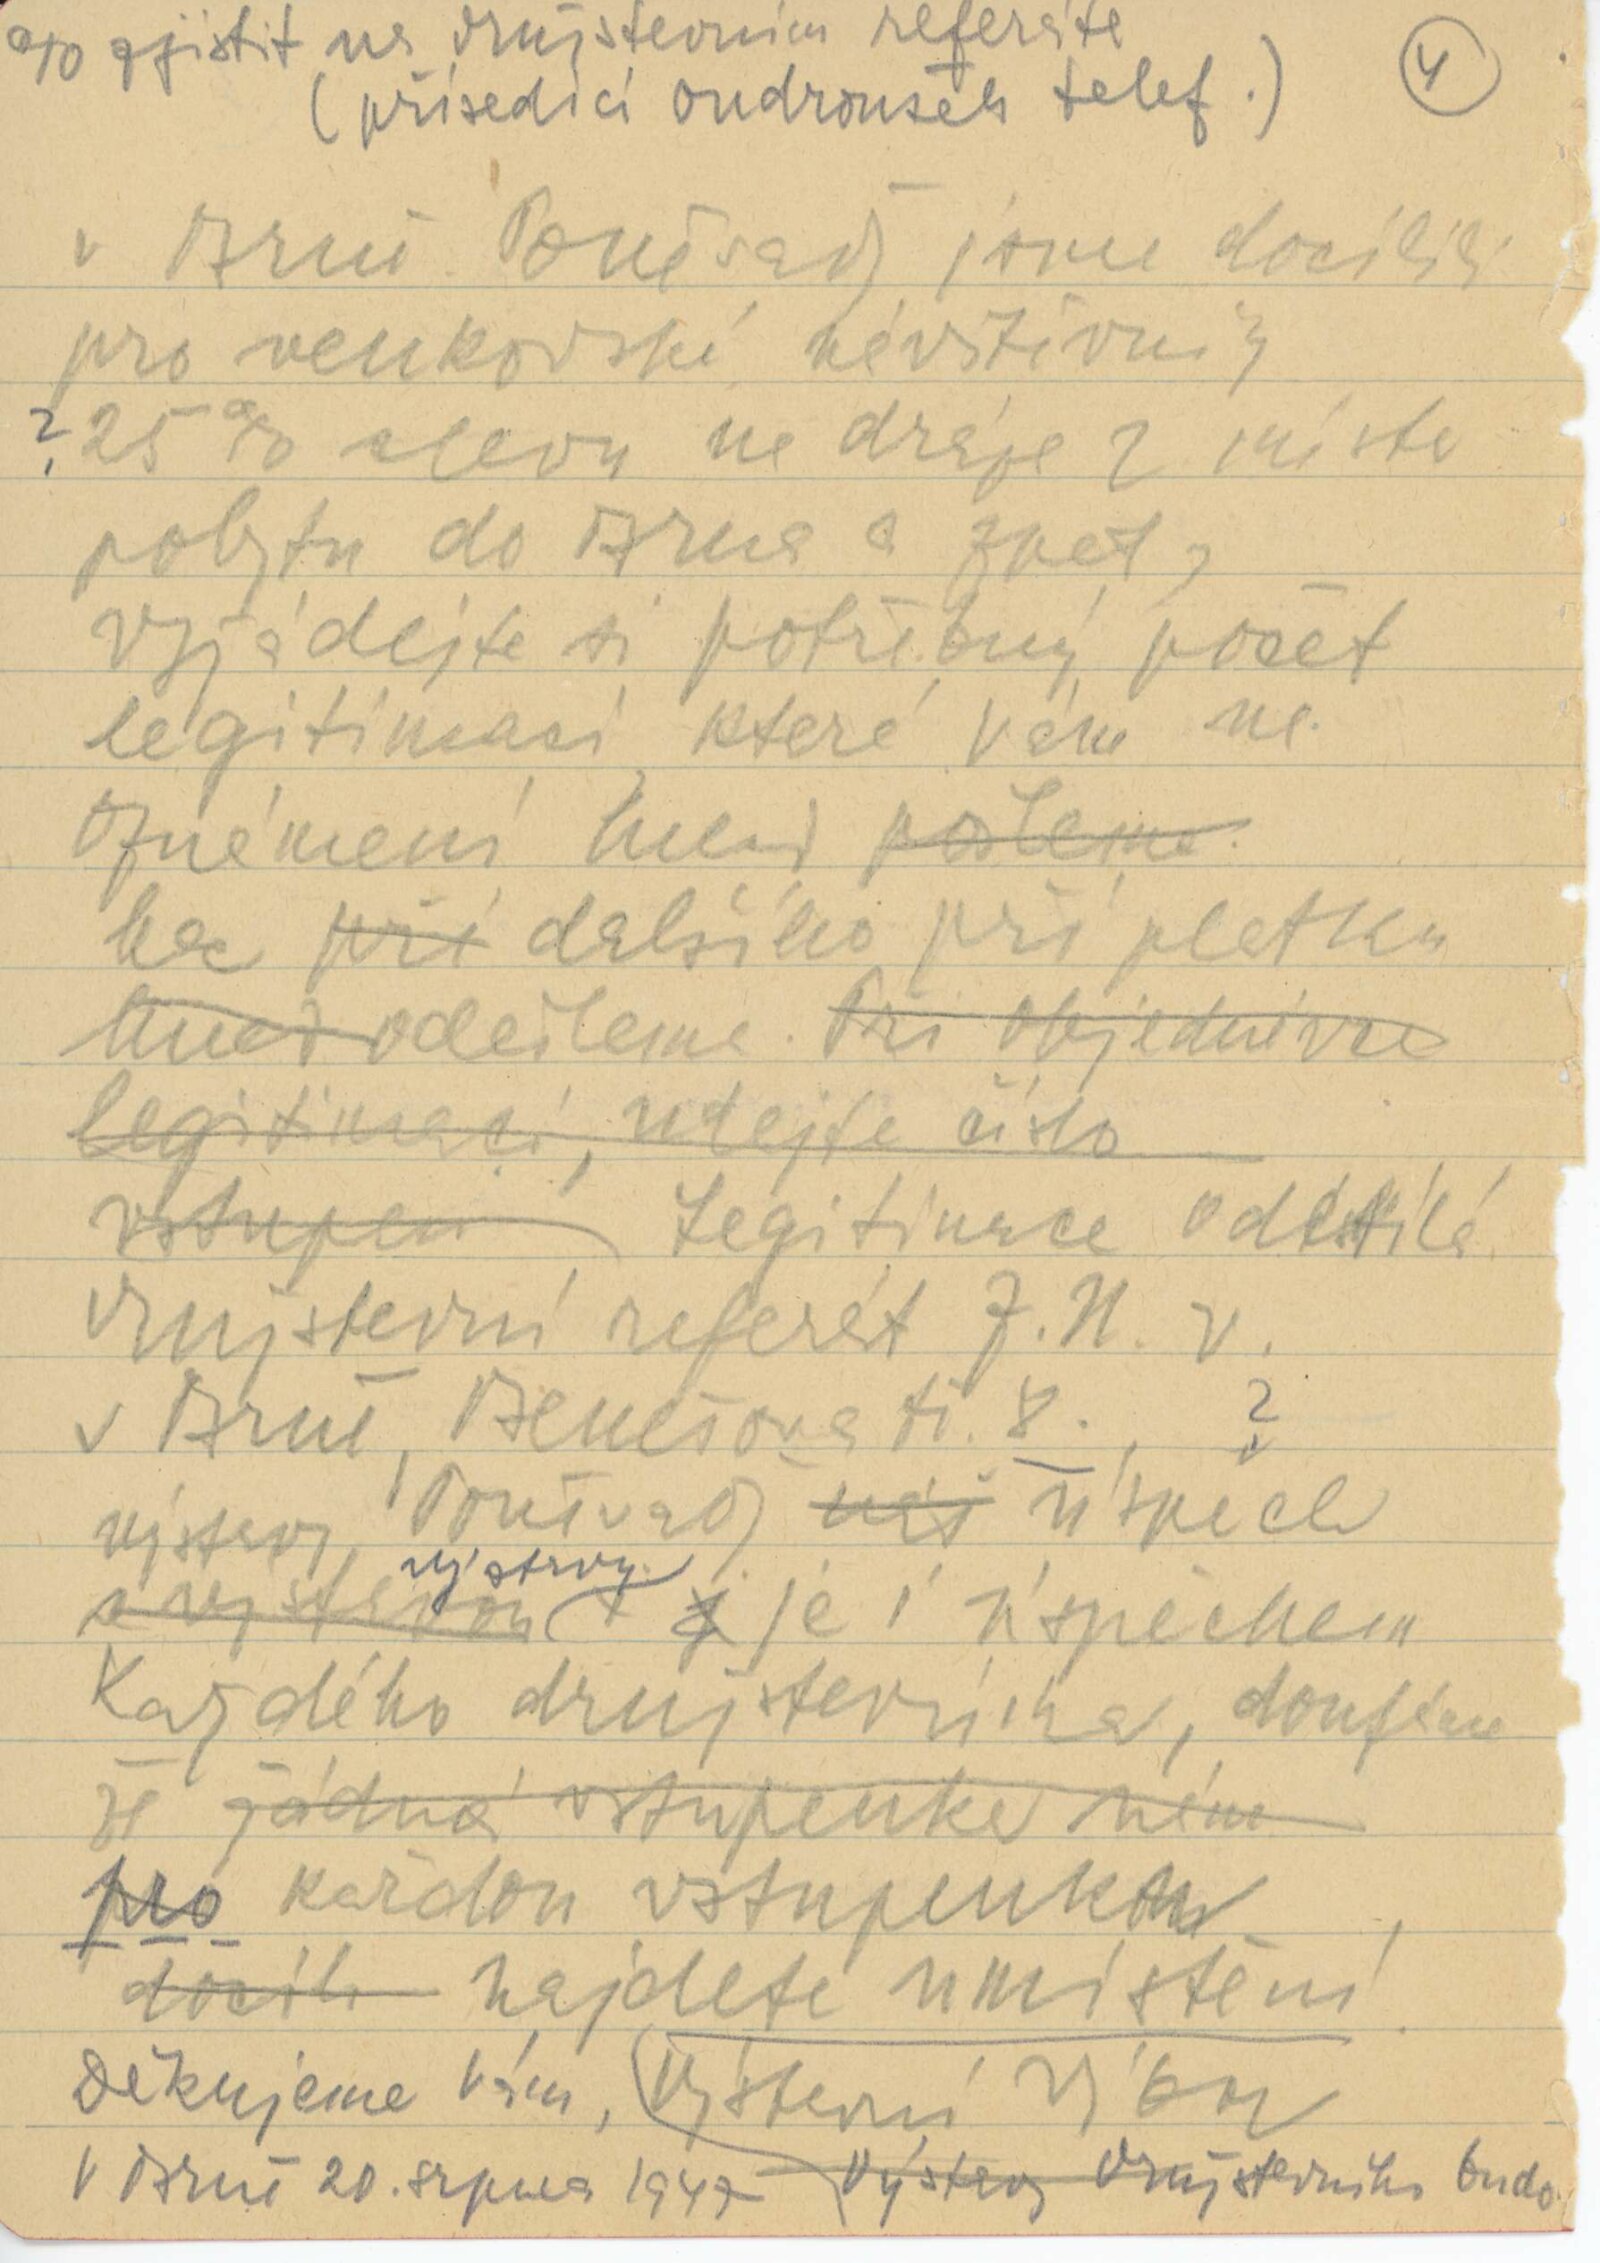 %0 zjistit na družstevním referáte
(přísedící Ondroušek telef.)
4
v Brně. Poněvadž jsme docílili
pro venkovské návštěvníky
? 25 %0 slevu na dráze z místa
pobytu do Brna a zpět,
vyžádejte si potřebný počet
legitimací, které Vám na
oznámení hned pošleme.
bez při dalšího příplatku
hned odešleme. Při objednávce
legitimací, udejte číslo
vstupen Legitimace odesílá
družstevní referát Z. N. V.
v Brně, Benešova tř. 8., ?
výstavy, Poněvadž náš úspěch
s výstavou výstavy je i úspěchem
každého družstevníka, doufáme
že žádná vstupenka nám
pro každou vstupenkou
docíli najdete umístění.
Děkujeme Vám, Výstavní výbor
V Brně 20. srpna 1947 Výstavy Družstevního budo